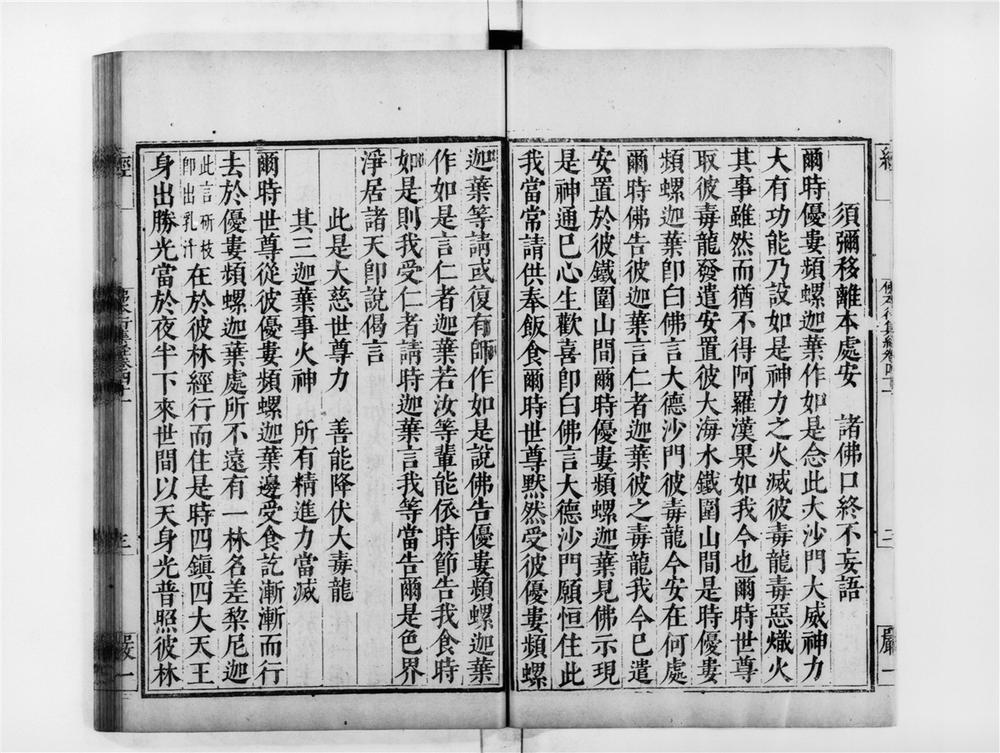 須彌移離本處安　諸佛口終不妄語
爾時優婁頻螺迦葉作如是念此大沙門大威神力
大有功能乃設如是神力之火滅彼毒龍毒惡熾火
其事雖然而猶不得阿羅漢果如我今也爾時世尊
取彼毒龍發遣安置彼大海水鐵圍山間是時優婁
頻螺迦葉卽白佛言大德沙門彼毒龍今安在何處
爾時佛告彼迦葉言仁者迦葉彼之毒龍我今已遣
安置於彼鐵圍山間爾時優婁頻螺迦葉見佛示現
是神通已心生歡喜卽白佛言大德沙門願恒住此
我當常請供奉飯食爾時世尊默然受彼優婁頻螺
迦葉等請或復有師作如是說佛告優婁頻螺迦葉
作如是言仁者迦葉若汝等輩能依時節告我食時
如是則我受仁者請時迦葉言我等當告爾是色界
淨居諸天卽說偈言
此是大慈世尊力　善能降伏大毒龍
其三迦葉事火神　所有精進力當滅
爾時世尊從彼優婁頻螺迦葉邊受食訖漸漸而行
去於優婁頻螺迦葉處所不遠有一林名差黎尼迦
此言斫枝
卽出乳汁
在於彼林經行而住是時四鎮四大天王
身出勝光當於夜半下來世間以天身光普照彼林
經
三
嚴一